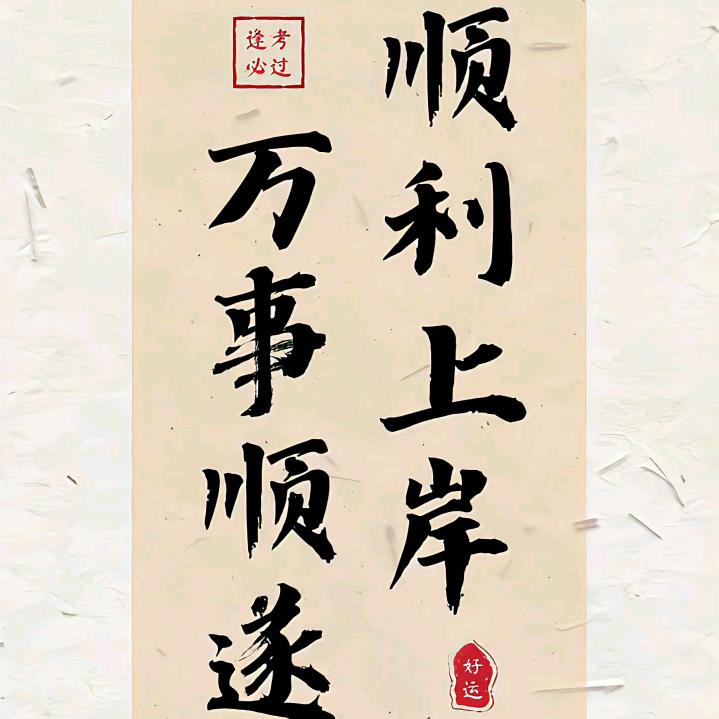 顺利上岸
好运
万事顺遂
逢考
必过